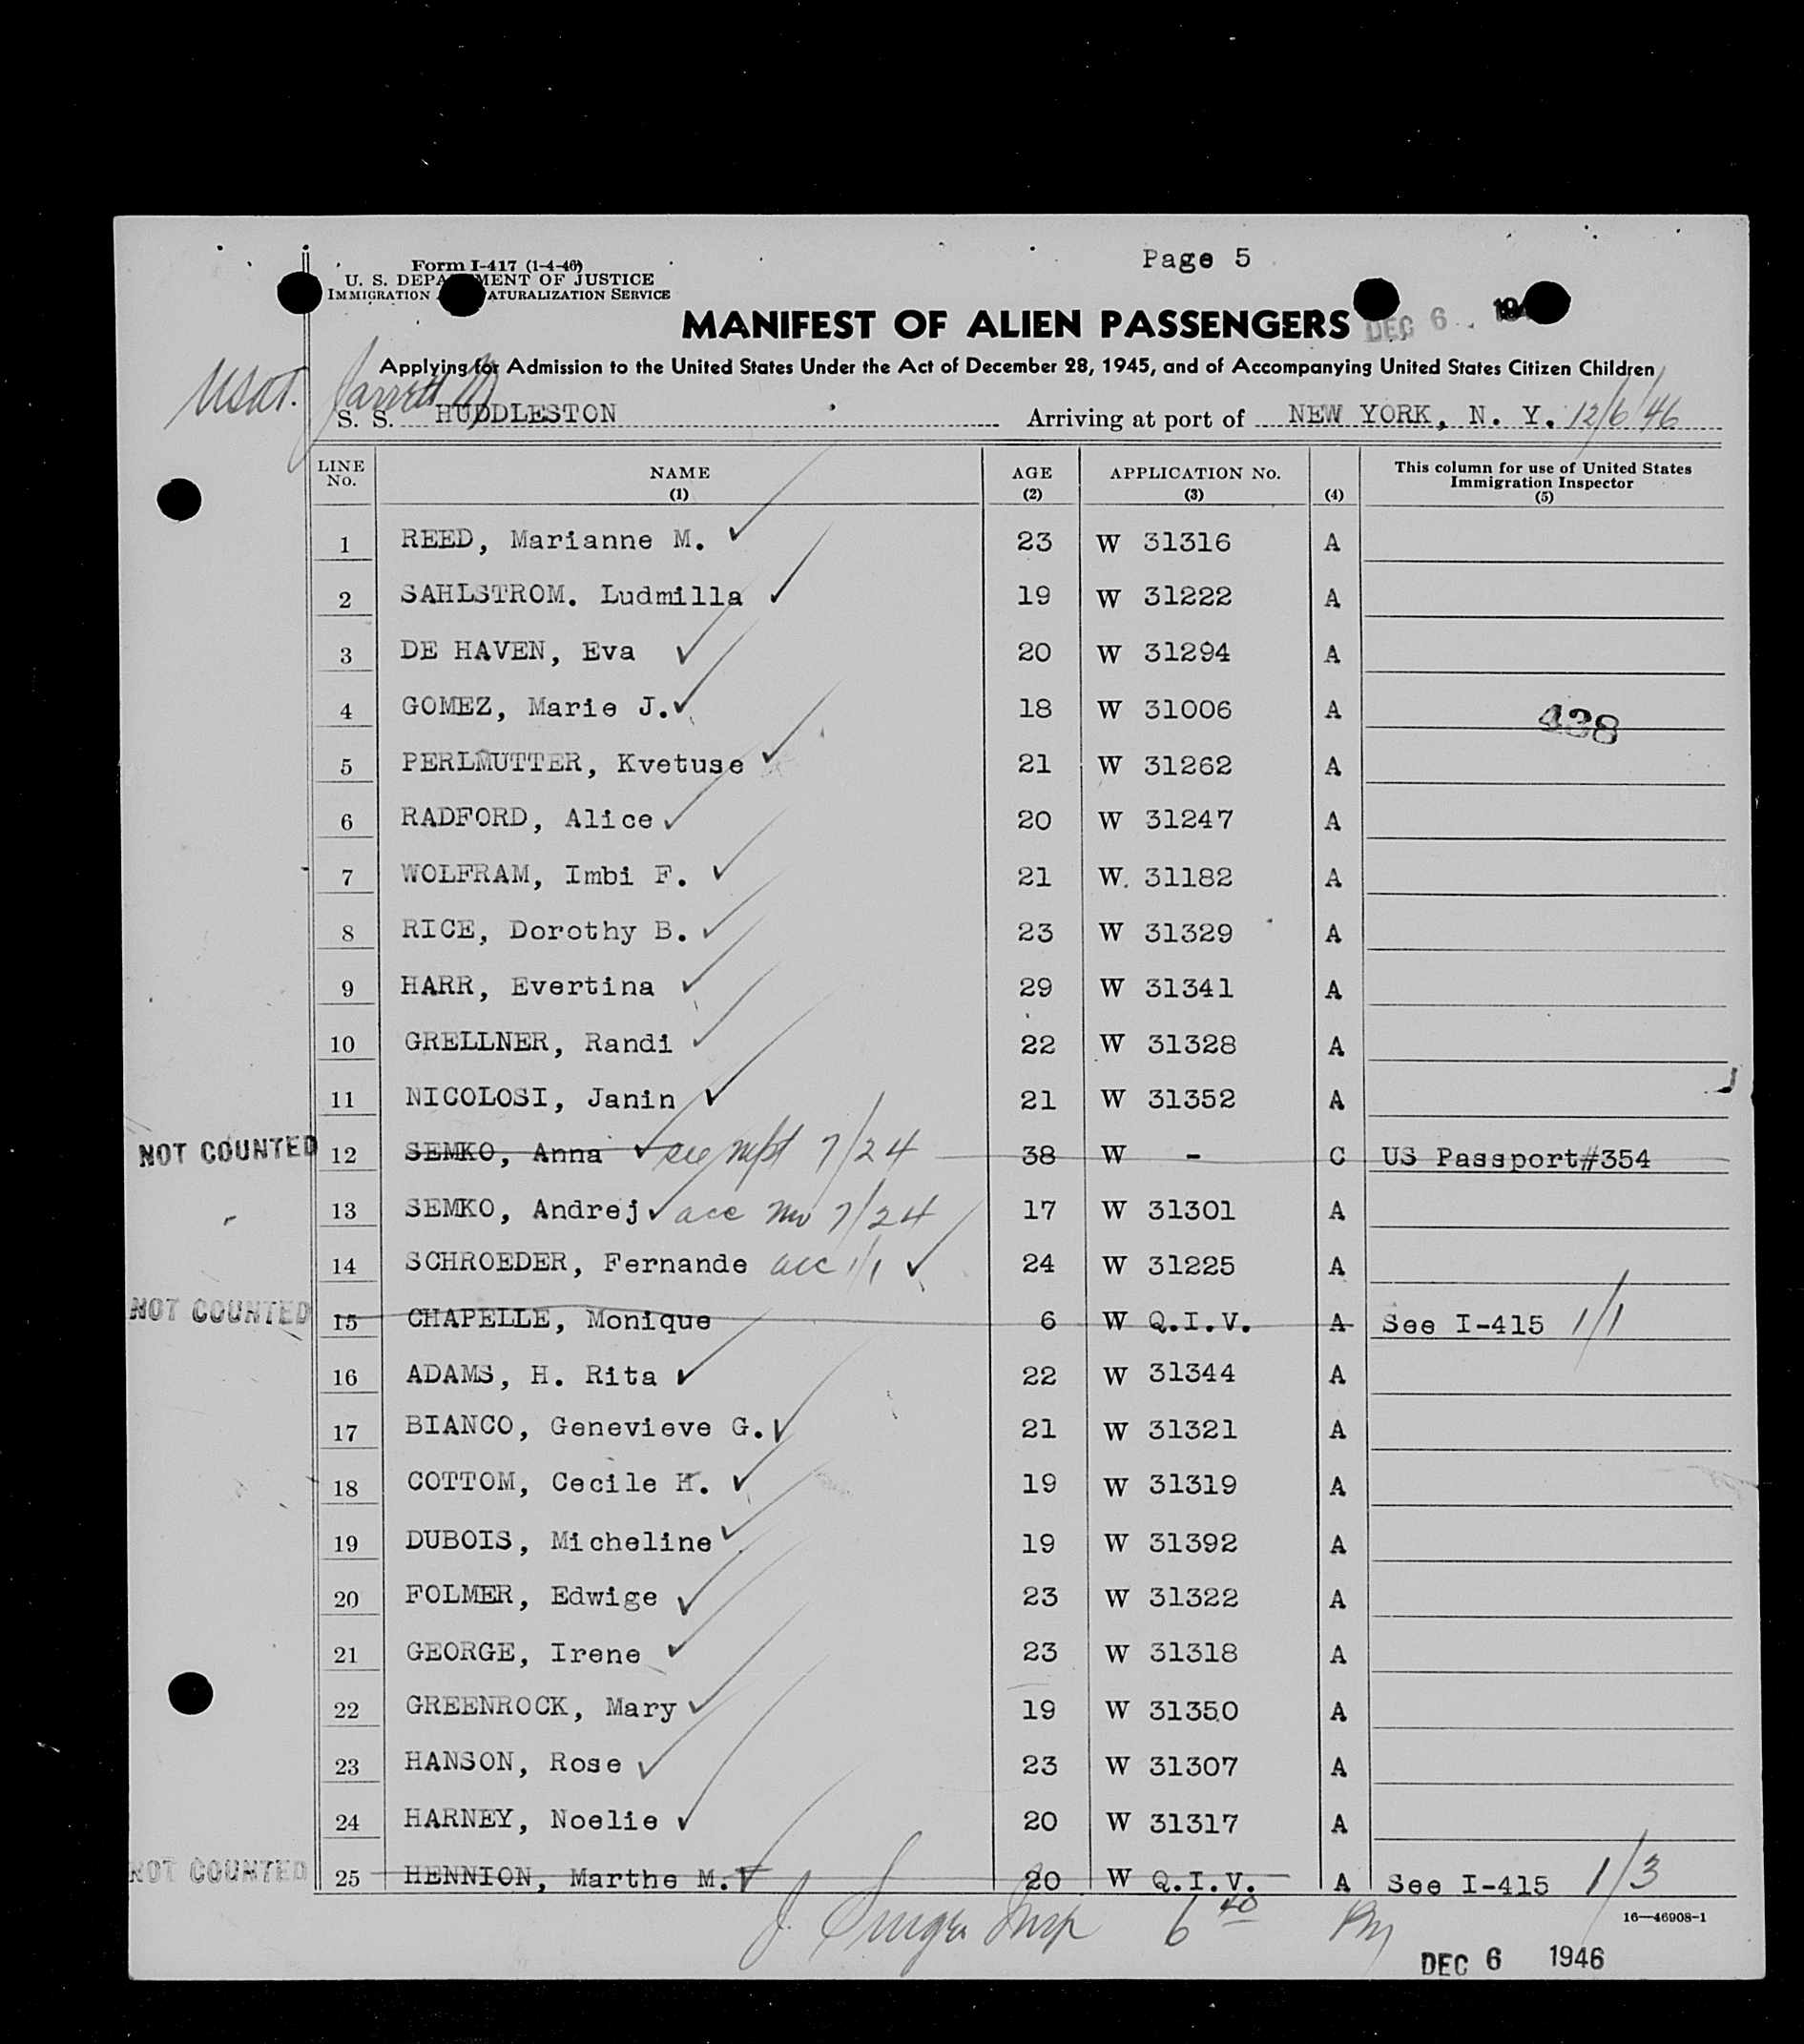 Page 5
Form I-417 (1-4-46)
U. S. DEPA MENT OF JUSTICE
IMMIGRATION ATURALIZATION SERVICE
MANIFEST OF ALIEN PASSENGERS
DEC 6
Applying for Admission to the United States Under the Act of December 28, 1945, and of Accompanying United States Citizen Children
USAT. Jarrett M
S. S. HUDDLESTON Arriving at port of NEW YORK, N. Y. 12/6/46
LINE No. NAME (1) AGE (2) APPLICATION No. (3) (4) This column for use of United States Immigration Inspector (5)
1 REED, Marianne M. ✓ 23 W 31316 A
2 SAHLSTROM. Ludmilla ✓ 19 W 31222 A
3 DE HAVEN, Eva ✓ 20 W 31294 A
4 GOMEZ, Marie J. ✓ 18 W 31006 A 438
5 PERLMUTTER, Kvetuse ✓ 21 W 31262 A
6 RADFORD, Alice ✓ 20 W 31247 A
7 WOLFRAM, Imbi F. ✓ 21 W. 31182 A
8 RICE, Dorothy B. ✓ 23 W 31329 A
9 HARR, Evertina ✓ 29 W 31341 A
10 GRELLNER, Randi ✓ 22 W 31328 A
11 NICOLOSI, Janin ✓ 21 W 31352 A
NOT COUNTED 12 SEMKO, Anna ✓ 7/24 38 W - C US Passport#354
13 SEMKO, Andrej ✓ acc 7/24 17 W 31301 A
14 SCHROEDER, Fernande acc 1/1 ✓ 24 W 31225 A
NOT COUNTED 15 CHAPELLE, Monique 6 W Q.I.V. A See I-415 1/1
16 ADAMS, H. Rita ✓ 22 W 31344 A
17 BIANCO, Genevieve G. ✓ 21 W 31321 A
18 COTTOM, Cecile H. ✓ 19 W 31319 A
19 DUBOIS, Micheline ✓ 19 W 31392 A
20 FOLMER, Edwige ✓ 23 W 31322 A
21 GEORGE, Irene ✓ 23 W 31318 A
22 GREENROCK, Mary ✓ 19 W 31350 A
23 HANSON, Rose ✓ 23 W 31307 A
24 HARNEY, Noelie ✓ 20 W 31317 A
NOT COUNTED 25 HENNION, Marthe M. ✓ 20 W Q.I.V. A See I-415 1/3
J. Insp 6 40 Pm
16—46908-1
DEC 6 1946